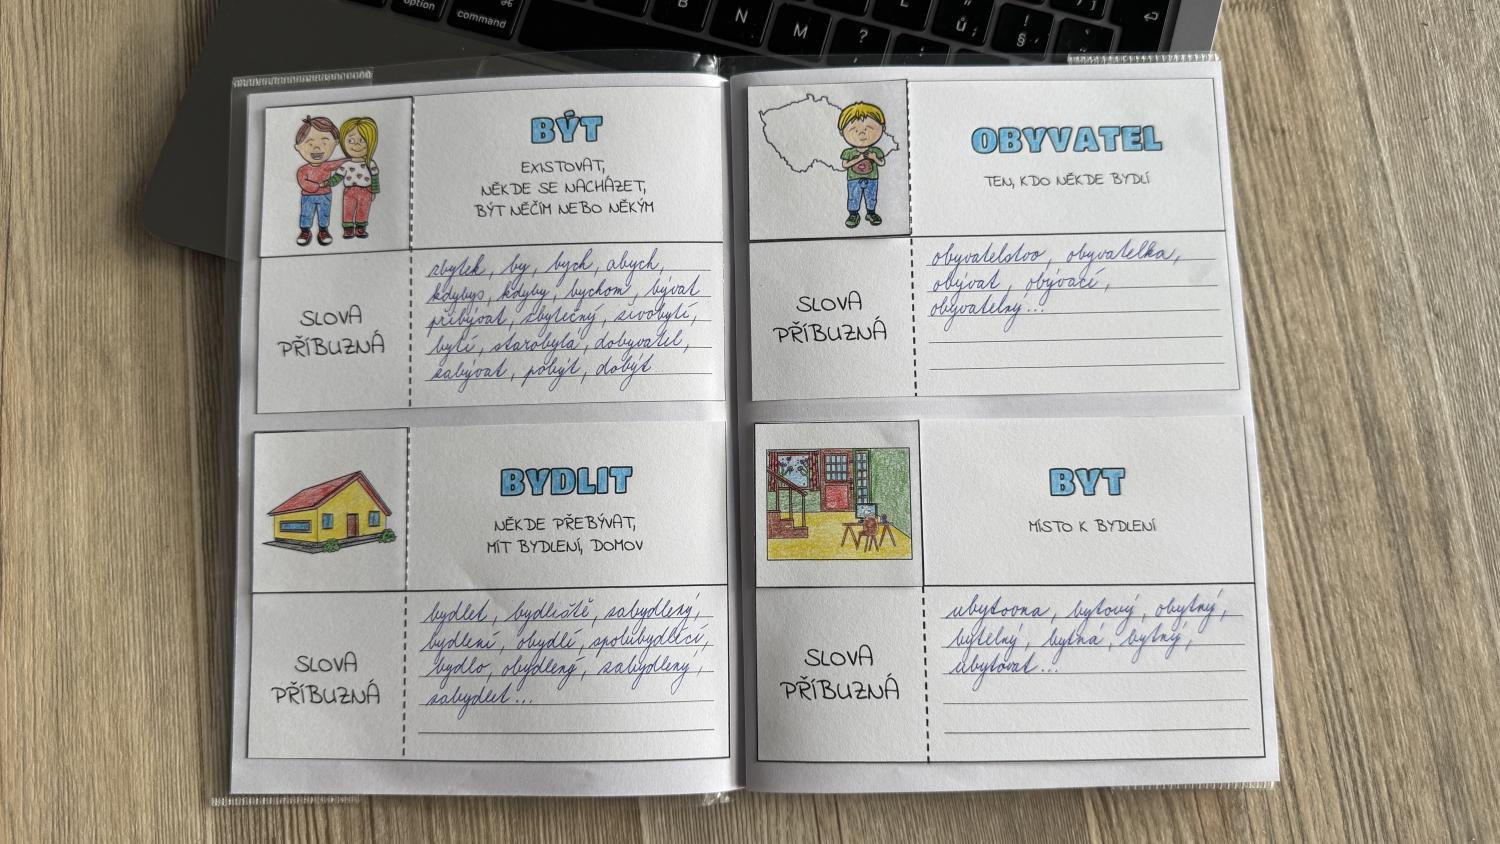 option
command
B
N
M
?
ů
!
§
BÝT
EXISTOVAT,
NĚKDE SE NACHÁZET,
BÝT NĚČÍM NEBO NĚKÝM
SLOVA
PŘÍBUZNÁ
zbytek, by, bych, abych,
kdybys, kdyby, bychom, bývat
přibývat, zbytečný, živobytí,
bytí, starobylá, dobyvatel,
zabývat, pobýt, dobýt
BYDLIT
NĚKDE PŘEBÝVAT,
MÍT BYDLENÍ, DOMOV
SLOVA
PŘÍBUZNÁ
bydlet, bydliště, zabydlený,
bydlení, obydlí, spolubydlící,
bydlo, obydlený, zabydlený,
zabydlet...
OBYVATEL
TEN, KDO NĚKDE BYDLÍ
SLOVA
PŘÍBUZNÁ
obyvatelstvo, obyvatelka,
obývat, obývací,
obyvatelný...
BYT
MÍSTO K BYDLENÍ
SLOVA
PŘÍBUZNÁ
ubytovna, bytový, obytný,
bytelný, bytná, bytný,
ubytovat...